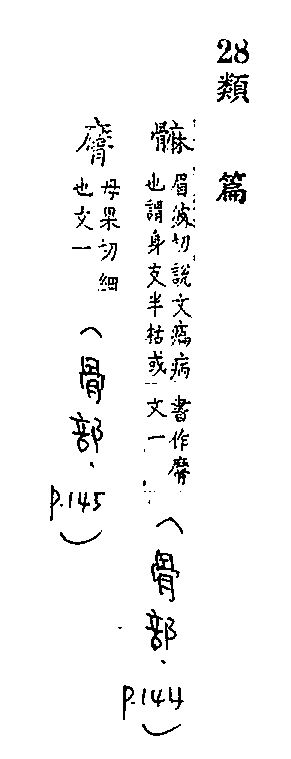 28類篇
䯢眉波切說文㾫病
也謂身支半枯或書作䯢
文一
(骨部、p.144)
母果切細
也文一
(骨部、p.145)